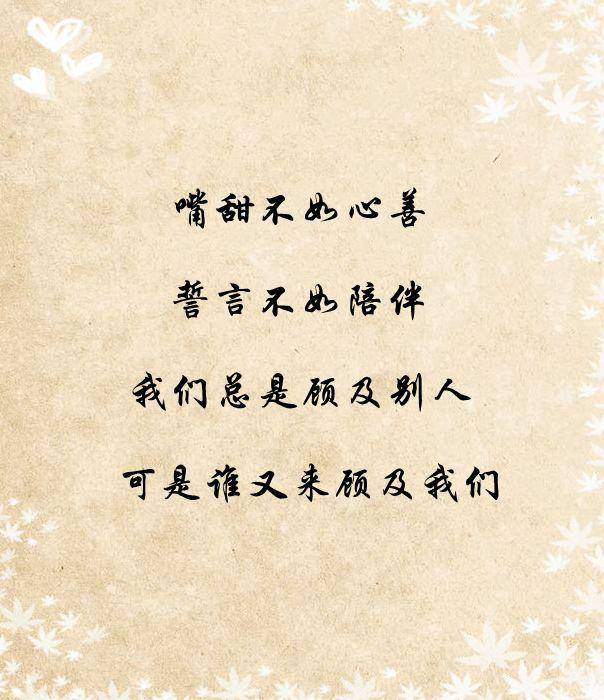 嘴甜不如心善
誓言不如陪伴
我们总是顾及别人
可是谁又来顾及我们